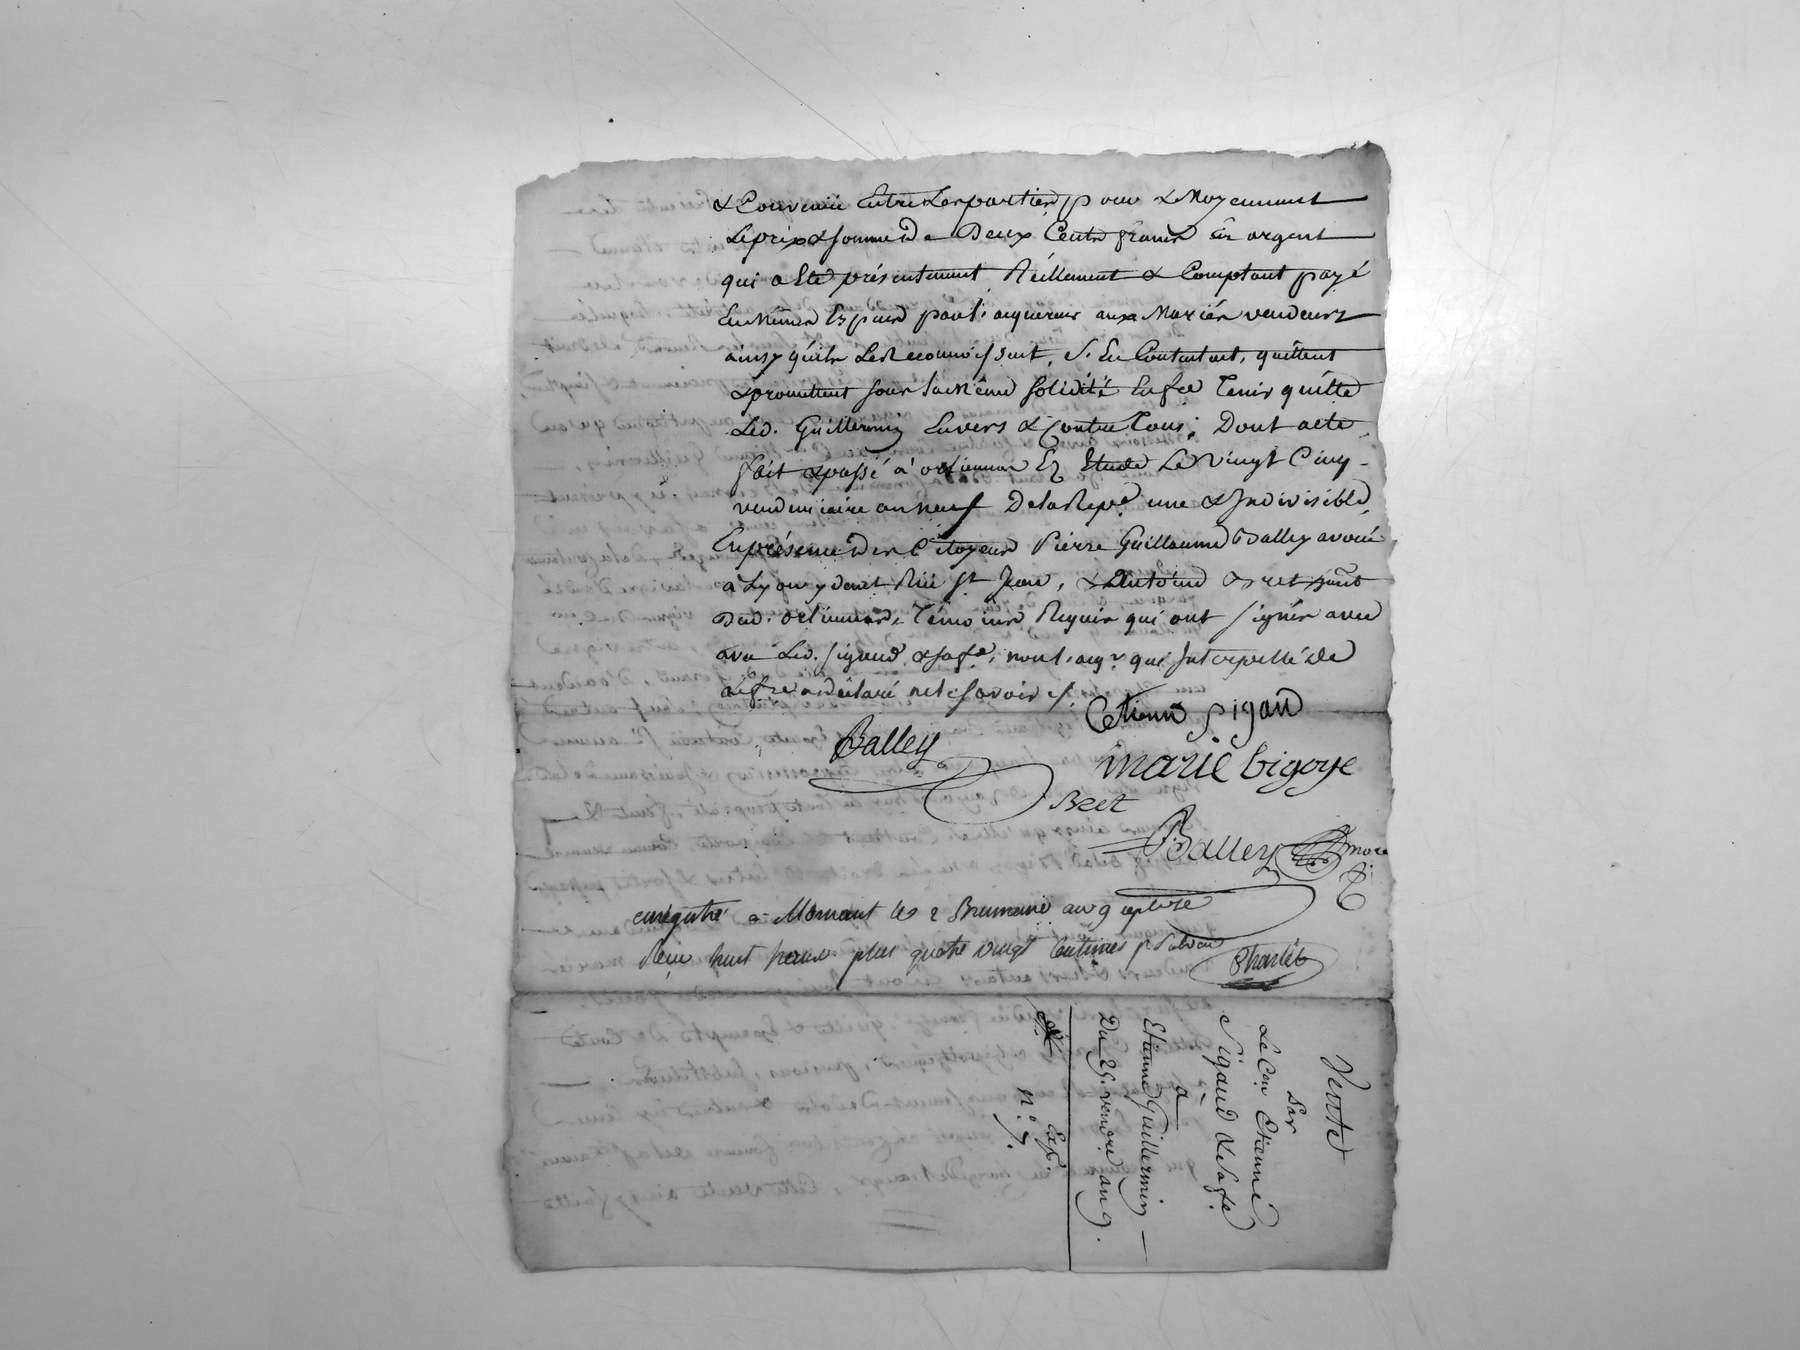 & Convenüe Entre Les parties, pour & Moyennant
Le prix & somme De Deux Cents francs En argent
qui a Eté présentement Réellement & Comptant payé
En Numer. Espaces par l'acquereur aux Mariés vendeurs
ainsy qu'ils Le Reconnoissent, S'En Contentent, quittent
& promettent sous La Même solidité En fre Tenir quitte
Led. Guillermin Envers & Contre Tous; Dont acte,
fait & passé à orlienas En Etude Le vingt Cinq
vendemiaire an neuf De la Repe. une & Indivisible,
En présence Des Citoyens Pierre Guillaume Balley avoué
à Lyon y demt. Rüe St Jean, & Antoine Bret
Dud. orlienas, Témoins Requis qui ont signés avec
avec Led. sigaud & sa fe., non l'acqr. qui Interpellé de
Le fre a déclaré ne le savoir /.
Etienne sigaud
Balley
marie bigoye
Bret
Balley
enregistré à Mornant les 2 Brumaire an 9
Reçu huit francs plus quatre vingt Centimes
Charlet
Vente
Par
Le Cen Etienne
Sigaud & sa fe
a
Etienne Guillermin
Du 25. vendre an 9.
Exp.
n.° 7.